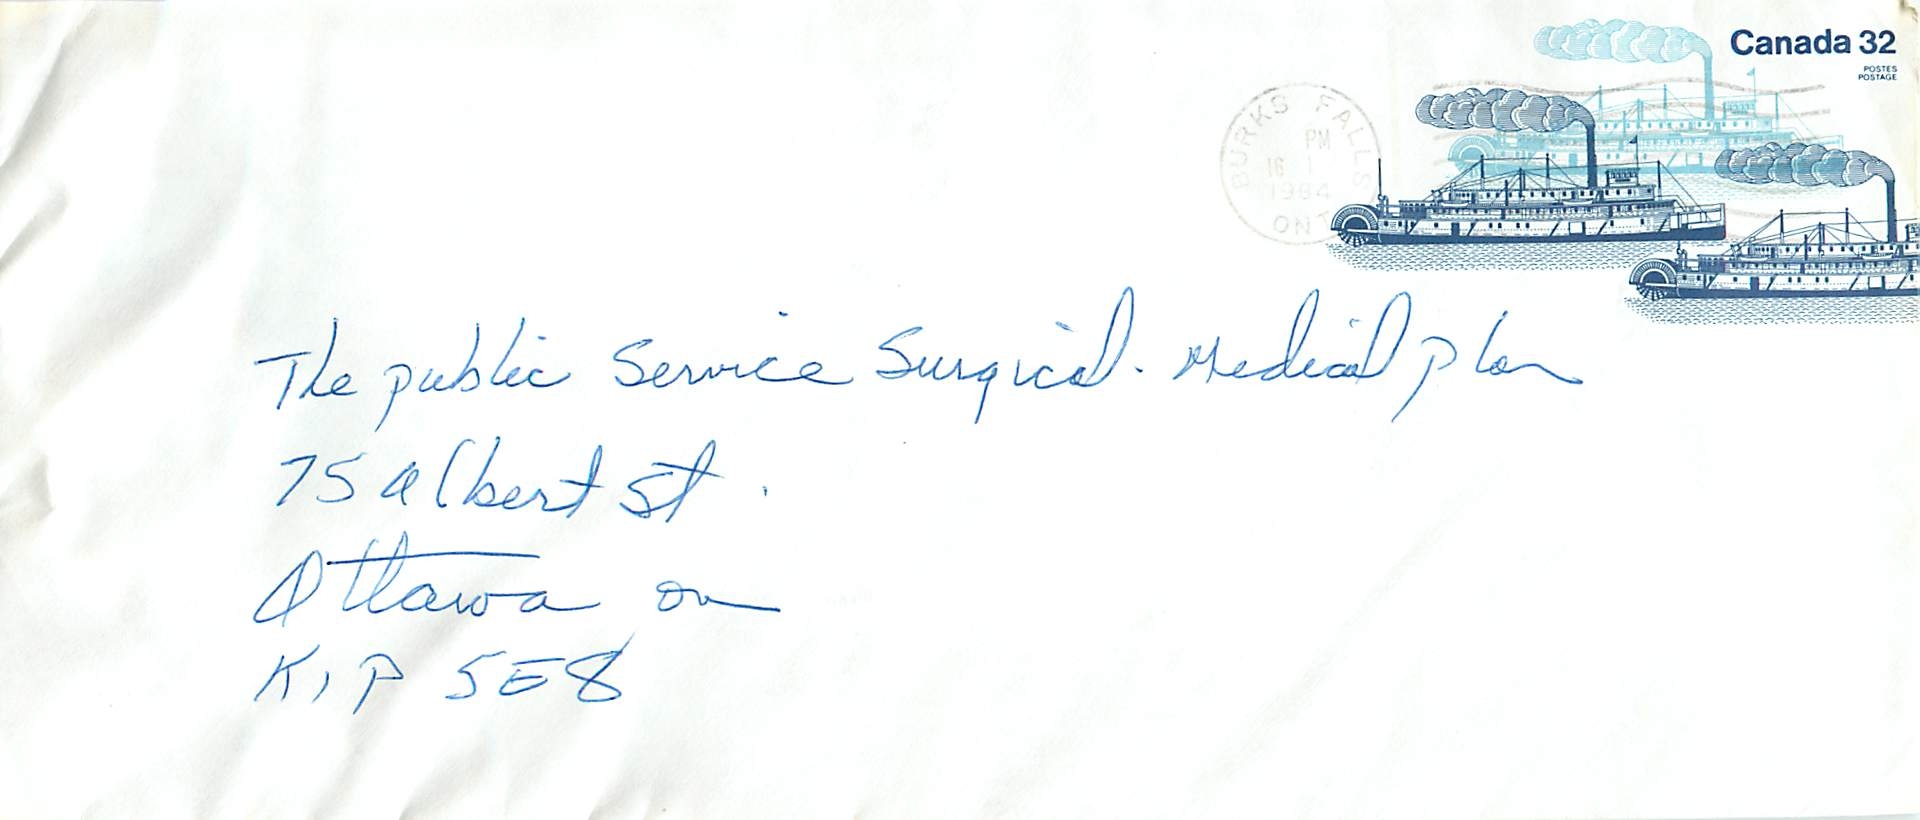 Canada 32
POSTES
POSTAGE
BURKS FALLS
PM
16 I
1984
ONT
The public Service Surgical. Medical plan
75 albert St.
Ottawa On
K1P 5E8